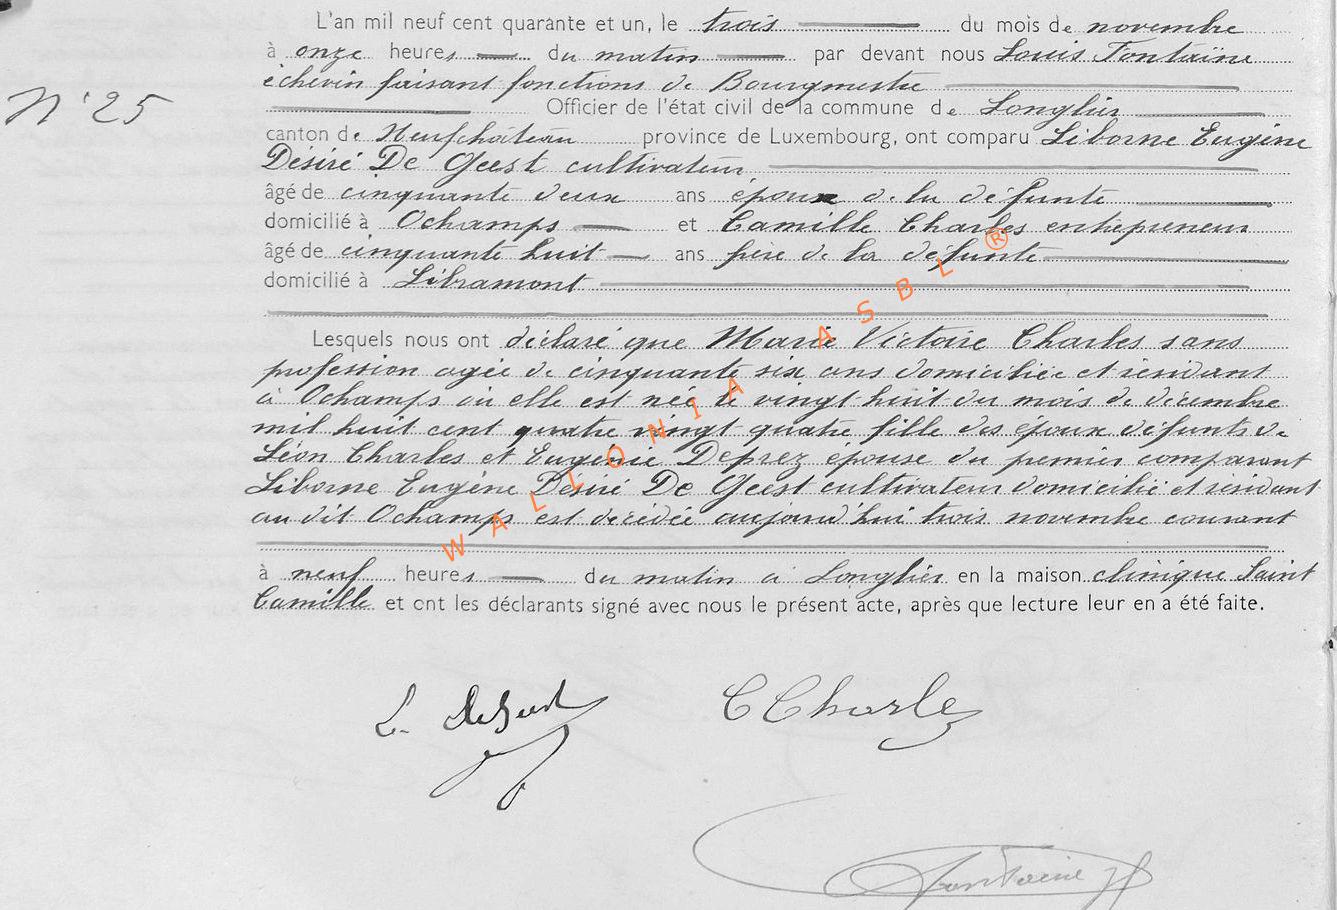 L'an mil neuf cent quarante et un, le trois du mois de novembre
à onze heures du matin par devant nous Louis Fontaine
échevin faisant fonctions de Bourgmestre
N° 25
Officier de l'état civil de la commune de Longlier
canton de Neufchâteau province de Luxembourg, ont comparu Liborne Eugène
Désiré De Geest cultivateur
âgé de cinquante deux ans époux de la défunte
domicilié à Ochamps et Camille Charles entrepreneur
âgé de cinquante huit ans frère de la défunte
domicilié à Libramont
Lesquels nous ont déclaré que Marie Victoire Charles sans
profession agée de cinquante six ans domiciliée et résidant
à Ochamps où elle est née le vingt huit du mois de décembre
mil huit cent quatre vingt quatre fille des époux défunts de
Léon Charles et Eugénie Deprez epouse du premier comparant
Liborne Eugène Désiré De Geest cultivateur domicilié et résidant
au dit Ochamps est décédée aujourd'hui trois novembre courant
à neuf heures du matin à Longlier en la maison clinique Saint
Camille et ont les déclarants signé avec nous le présent acte, après que lecture leur en a été faite.
WALLONIA ASBL ®
L. DeGeest C Charles
Fontaine